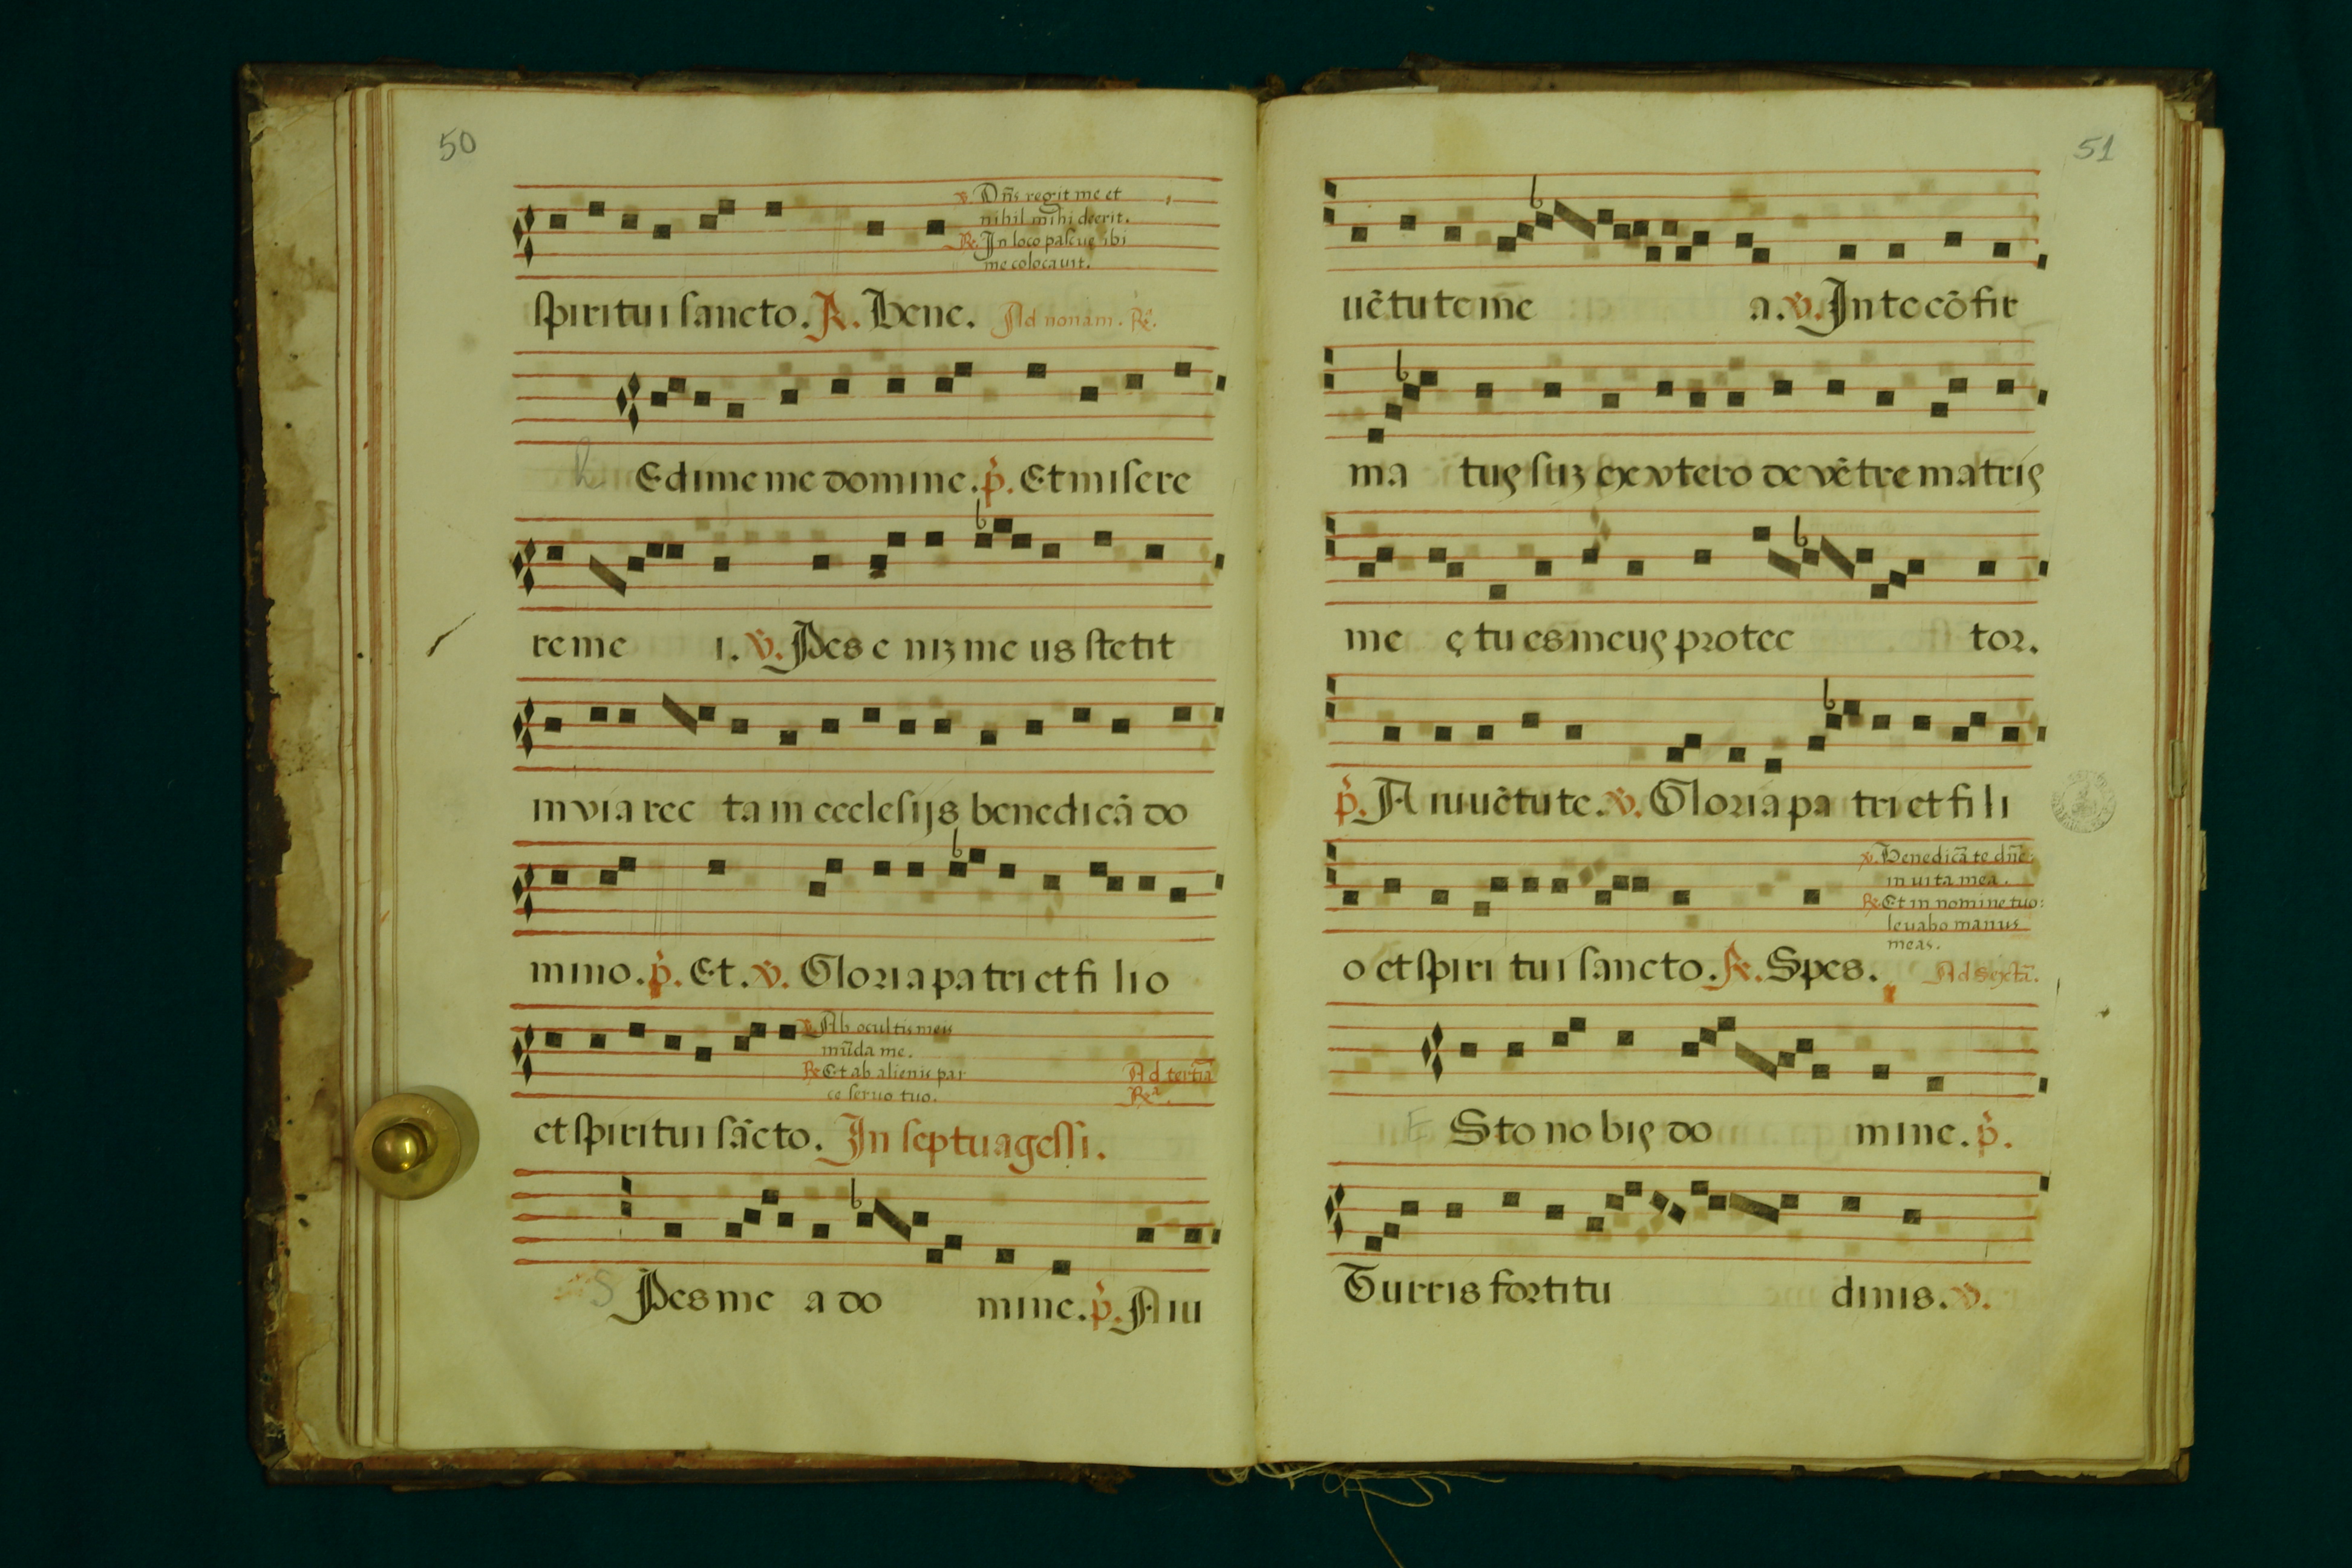 50
℣. Dñs regit me et
nihil mihi deerit.
℟. In loco pascuę ibi
me colocavit.
spiritui sancto. ℟. Bene. Ad nonam. ℟.
R Edime me domine. p. Et misere
re me i. ℣. Pes e niz me us stetit
in via rec ta in ecclesijs benedicã do
mino. p. Et. ℣. Gloria pa tri et fi lio
℣. Ab ocultis meis
mũda me.
℟. Et ab alienis par
ce servo tuo.
Ad tertiã
℟.
et spiritui sãcto. In septuagessi.
S Pes me a do mine. p. A iu
51
uẽtute me a. ℣. In te cõfir
ma tus suz ex vtero de vẽtre matris
me ę tu es meus protec tor.
p. A iuuẽtute. ℣. Gloria pa tri et fi li
℣. Benedicã te dñe:
in uita mea.
℟. Et in nomine tuo:
levabo manus
meas.
o et spiri tui sancto. ℟. Spes. Ad sextã.
E Sto no bis do mine. p.
Turris fortitu dinis. ℣.